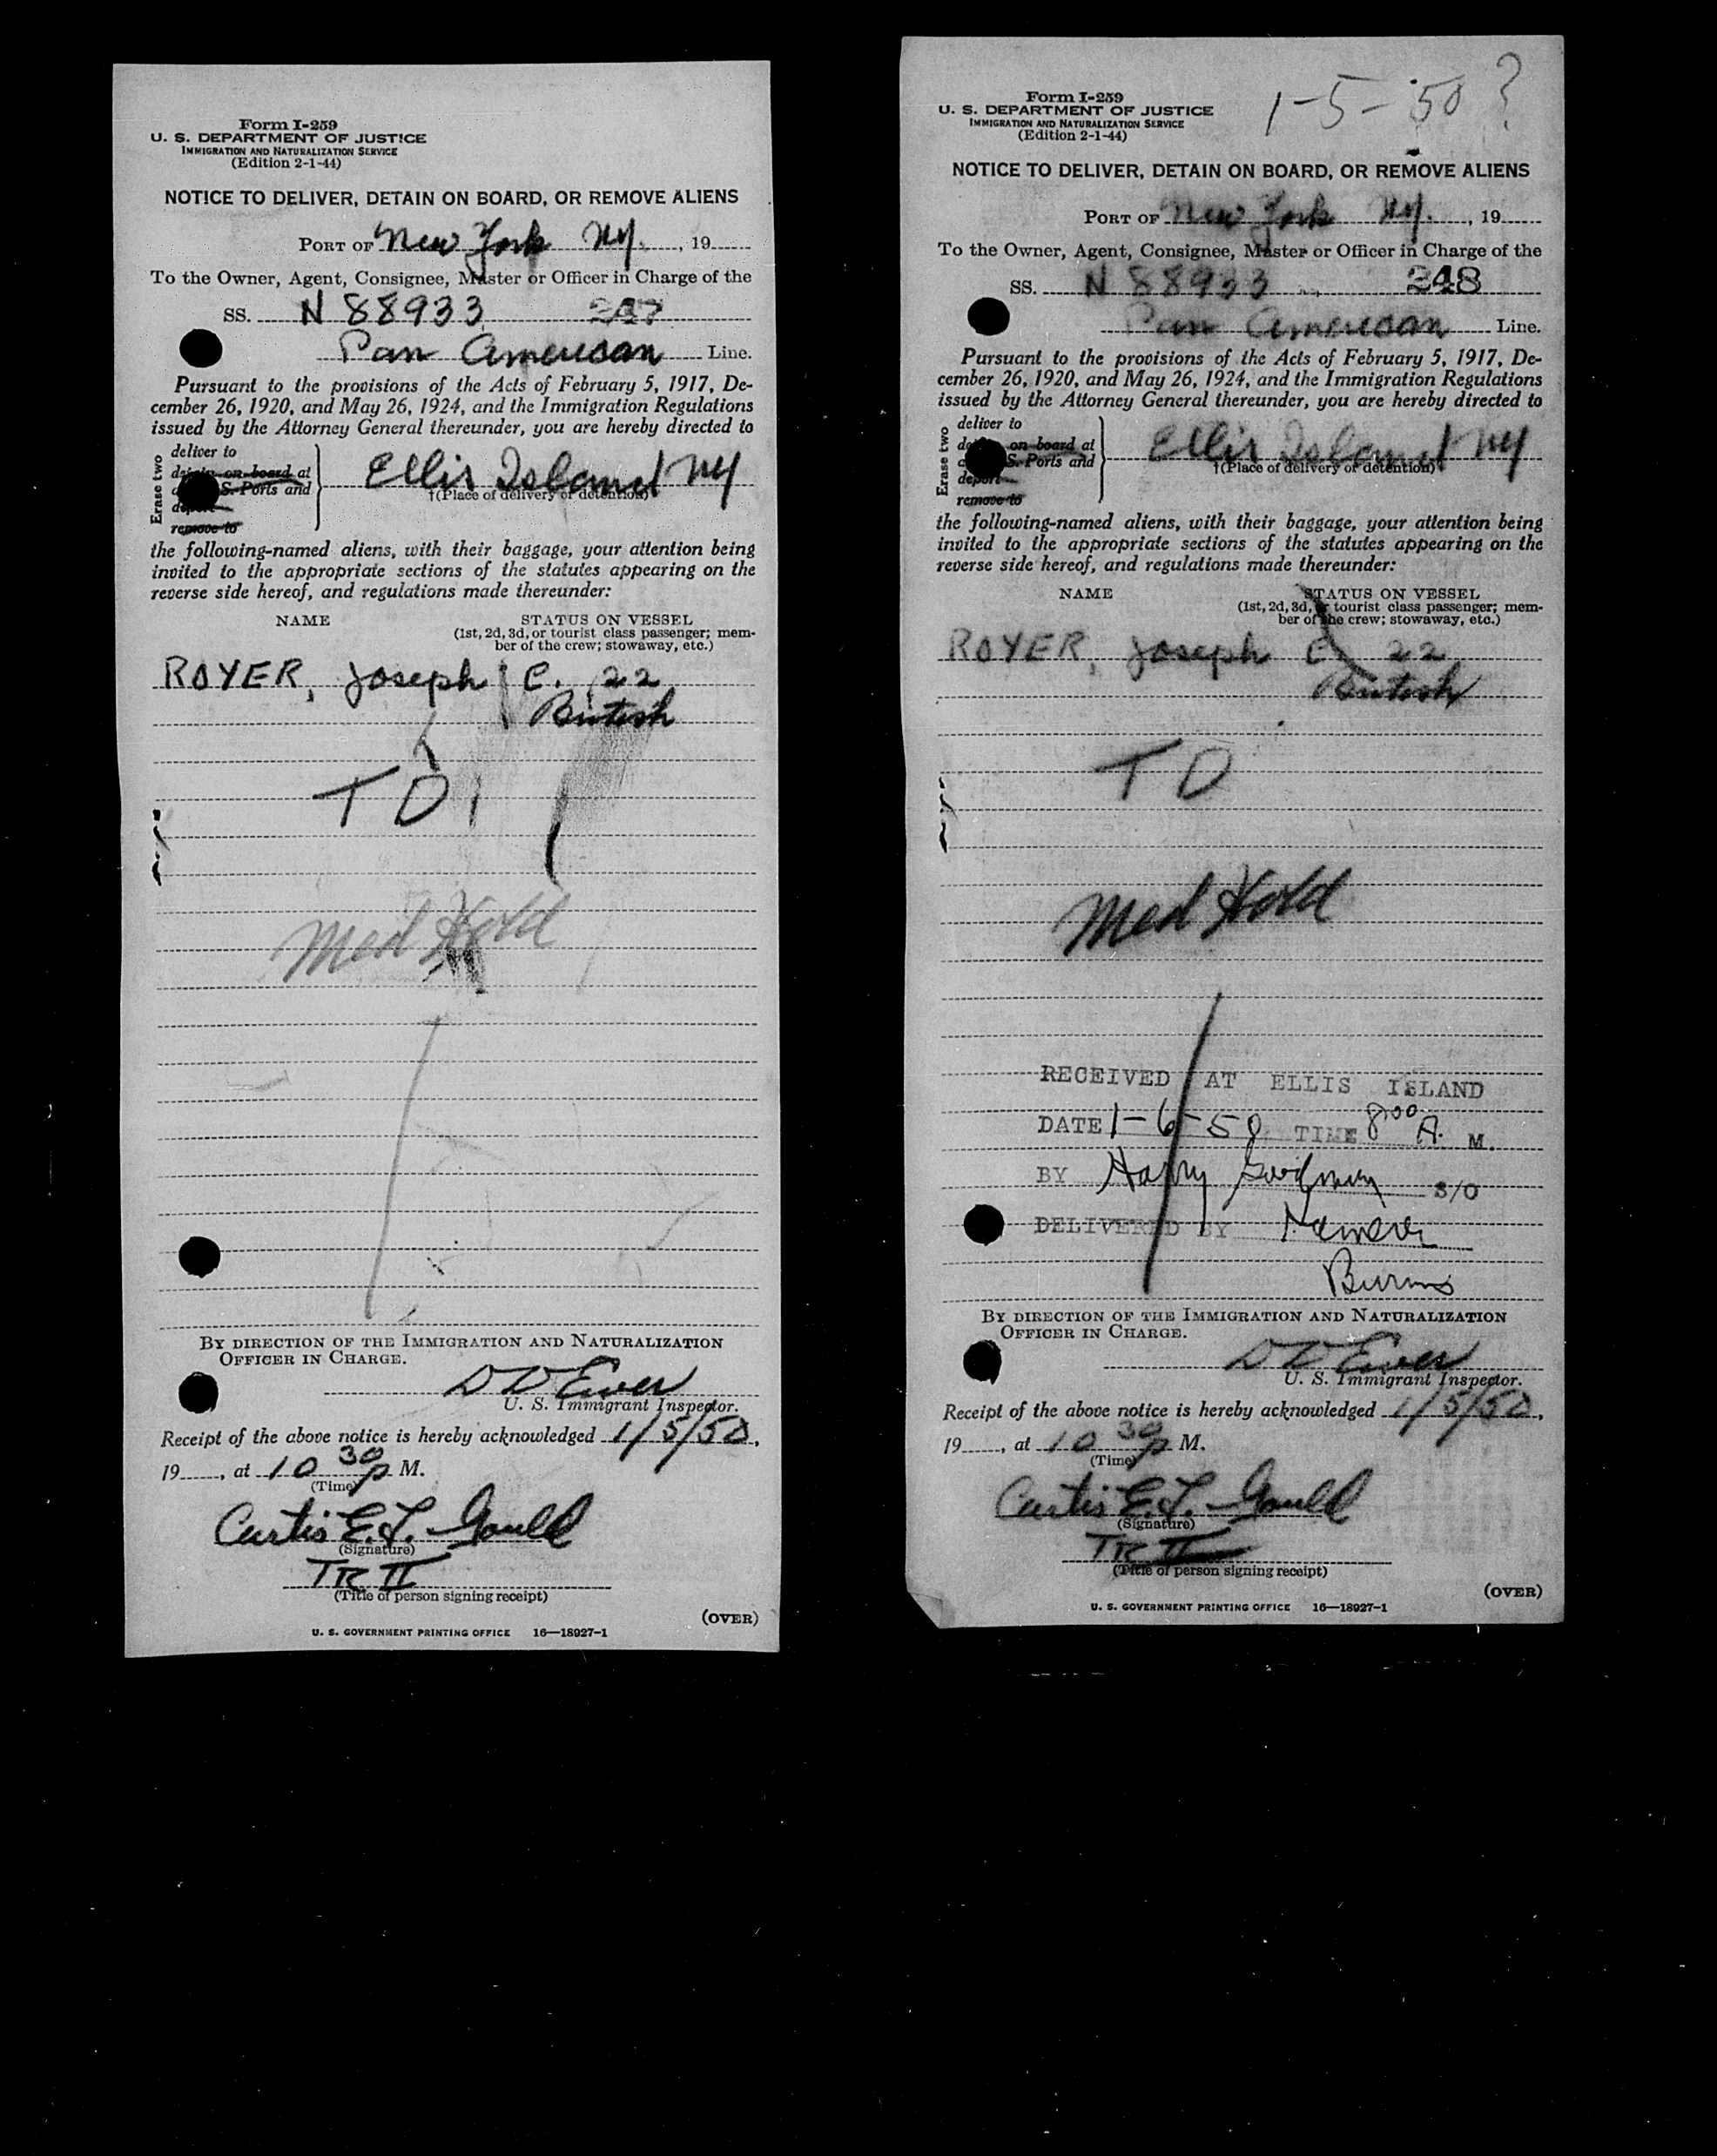 Form I-259
U. S. DEPARTMENT OF JUSTICE
IMMIGRATION AND NATURALIZATION SERVICE
(Edition 2-1-44)
NOTICE TO DELIVER, DETAIN ON BOARD, OR REMOVE ALIENS
PORT OF New York NY., 19
To the Owner, Agent, Consignee, Master or Officer in Charge of the
SS. N 88933
Pan American Line.
Pursuant to the provisions of the Acts of February 5, 1917, De-
cember 26, 1920, and May 26, 1924, and the Immigration Regulations
issued by the Attorney General thereunder, you are hereby directed to
Erase two
deliver to
on board at
S. Ports and
deport
remove to
Ellis Island NY
†(Place of delivery or detention)
the following-named aliens, with their baggage, your attention being
invited to the appropriate sections of the statutes appearing on the
reverse side hereof, and regulations made thereunder:
NAME STATUS ON VESSEL
(1st, 2d, 3d, or tourist class passenger; mem-
ber of the crew; stowaway, etc.)
ROYER, Joseph E. 22
British
TD
Med Hold
BY DIRECTION OF THE IMMIGRATION AND NATURALIZATION
OFFICER IN CHARGE.
U. S. Immigrant Inspector.
Receipt of the above notice is hereby acknowledged 1/5/50,
19, at 10 30 p M.
(Time)
Curtis E. L. Gould
(Signature)
TR II
(Title of person signing receipt)
(OVER)
U. S. GOVERNMENT PRINTING OFFICE 16—18927-1
1-5-50 ?
Form I-259
U. S. DEPARTMENT OF JUSTICE
IMMIGRATION AND NATURALIZATION SERVICE
(Edition 2-1-44)
NOTICE TO DELIVER, DETAIN ON BOARD, OR REMOVE ALIENS
PORT OF New York NY., 19
To the Owner, Agent, Consignee, Master or Officer in Charge of the
SS. N 88933 248
Pan American Line.
Pursuant to the provisions of the Acts of February 5, 1917, De-
cember 26, 1920, and May 26, 1924, and the Immigration Regulations
issued by the Attorney General thereunder, you are hereby directed to
Erase two
deliver to
on board at
S. Ports and
deport
remove to
Ellis Island NY
†(Place of delivery or detention)
the following-named aliens, with their baggage, your attention being
invited to the appropriate sections of the statutes appearing on the
reverse side hereof, and regulations made thereunder:
NAME STATUS ON VESSEL
(1st, 2d, 3d, or tourist class passenger; mem-
ber of the crew; stowaway, etc.)
ROYER, Joseph E. 22
British
TD
Med Hold
RECEIVED AT ELLIS ISLAND
DATE 1-6-50 TIME 8 00 A. M.
BY Harry Goodman S/O
DELIVERED BY
Burns
BY DIRECTION OF THE IMMIGRATION AND NATURALIZATION
OFFICER IN CHARGE.
U. S. Immigrant Inspector.
Receipt of the above notice is hereby acknowledged 1/5/50,
19, at 10 30 p M.
(Time)
Curtis E. L. Gould
(Signature)
TR II
(Title of person signing receipt)
(OVER)
U. S. GOVERNMENT PRINTING OFFICE 16—18927-1